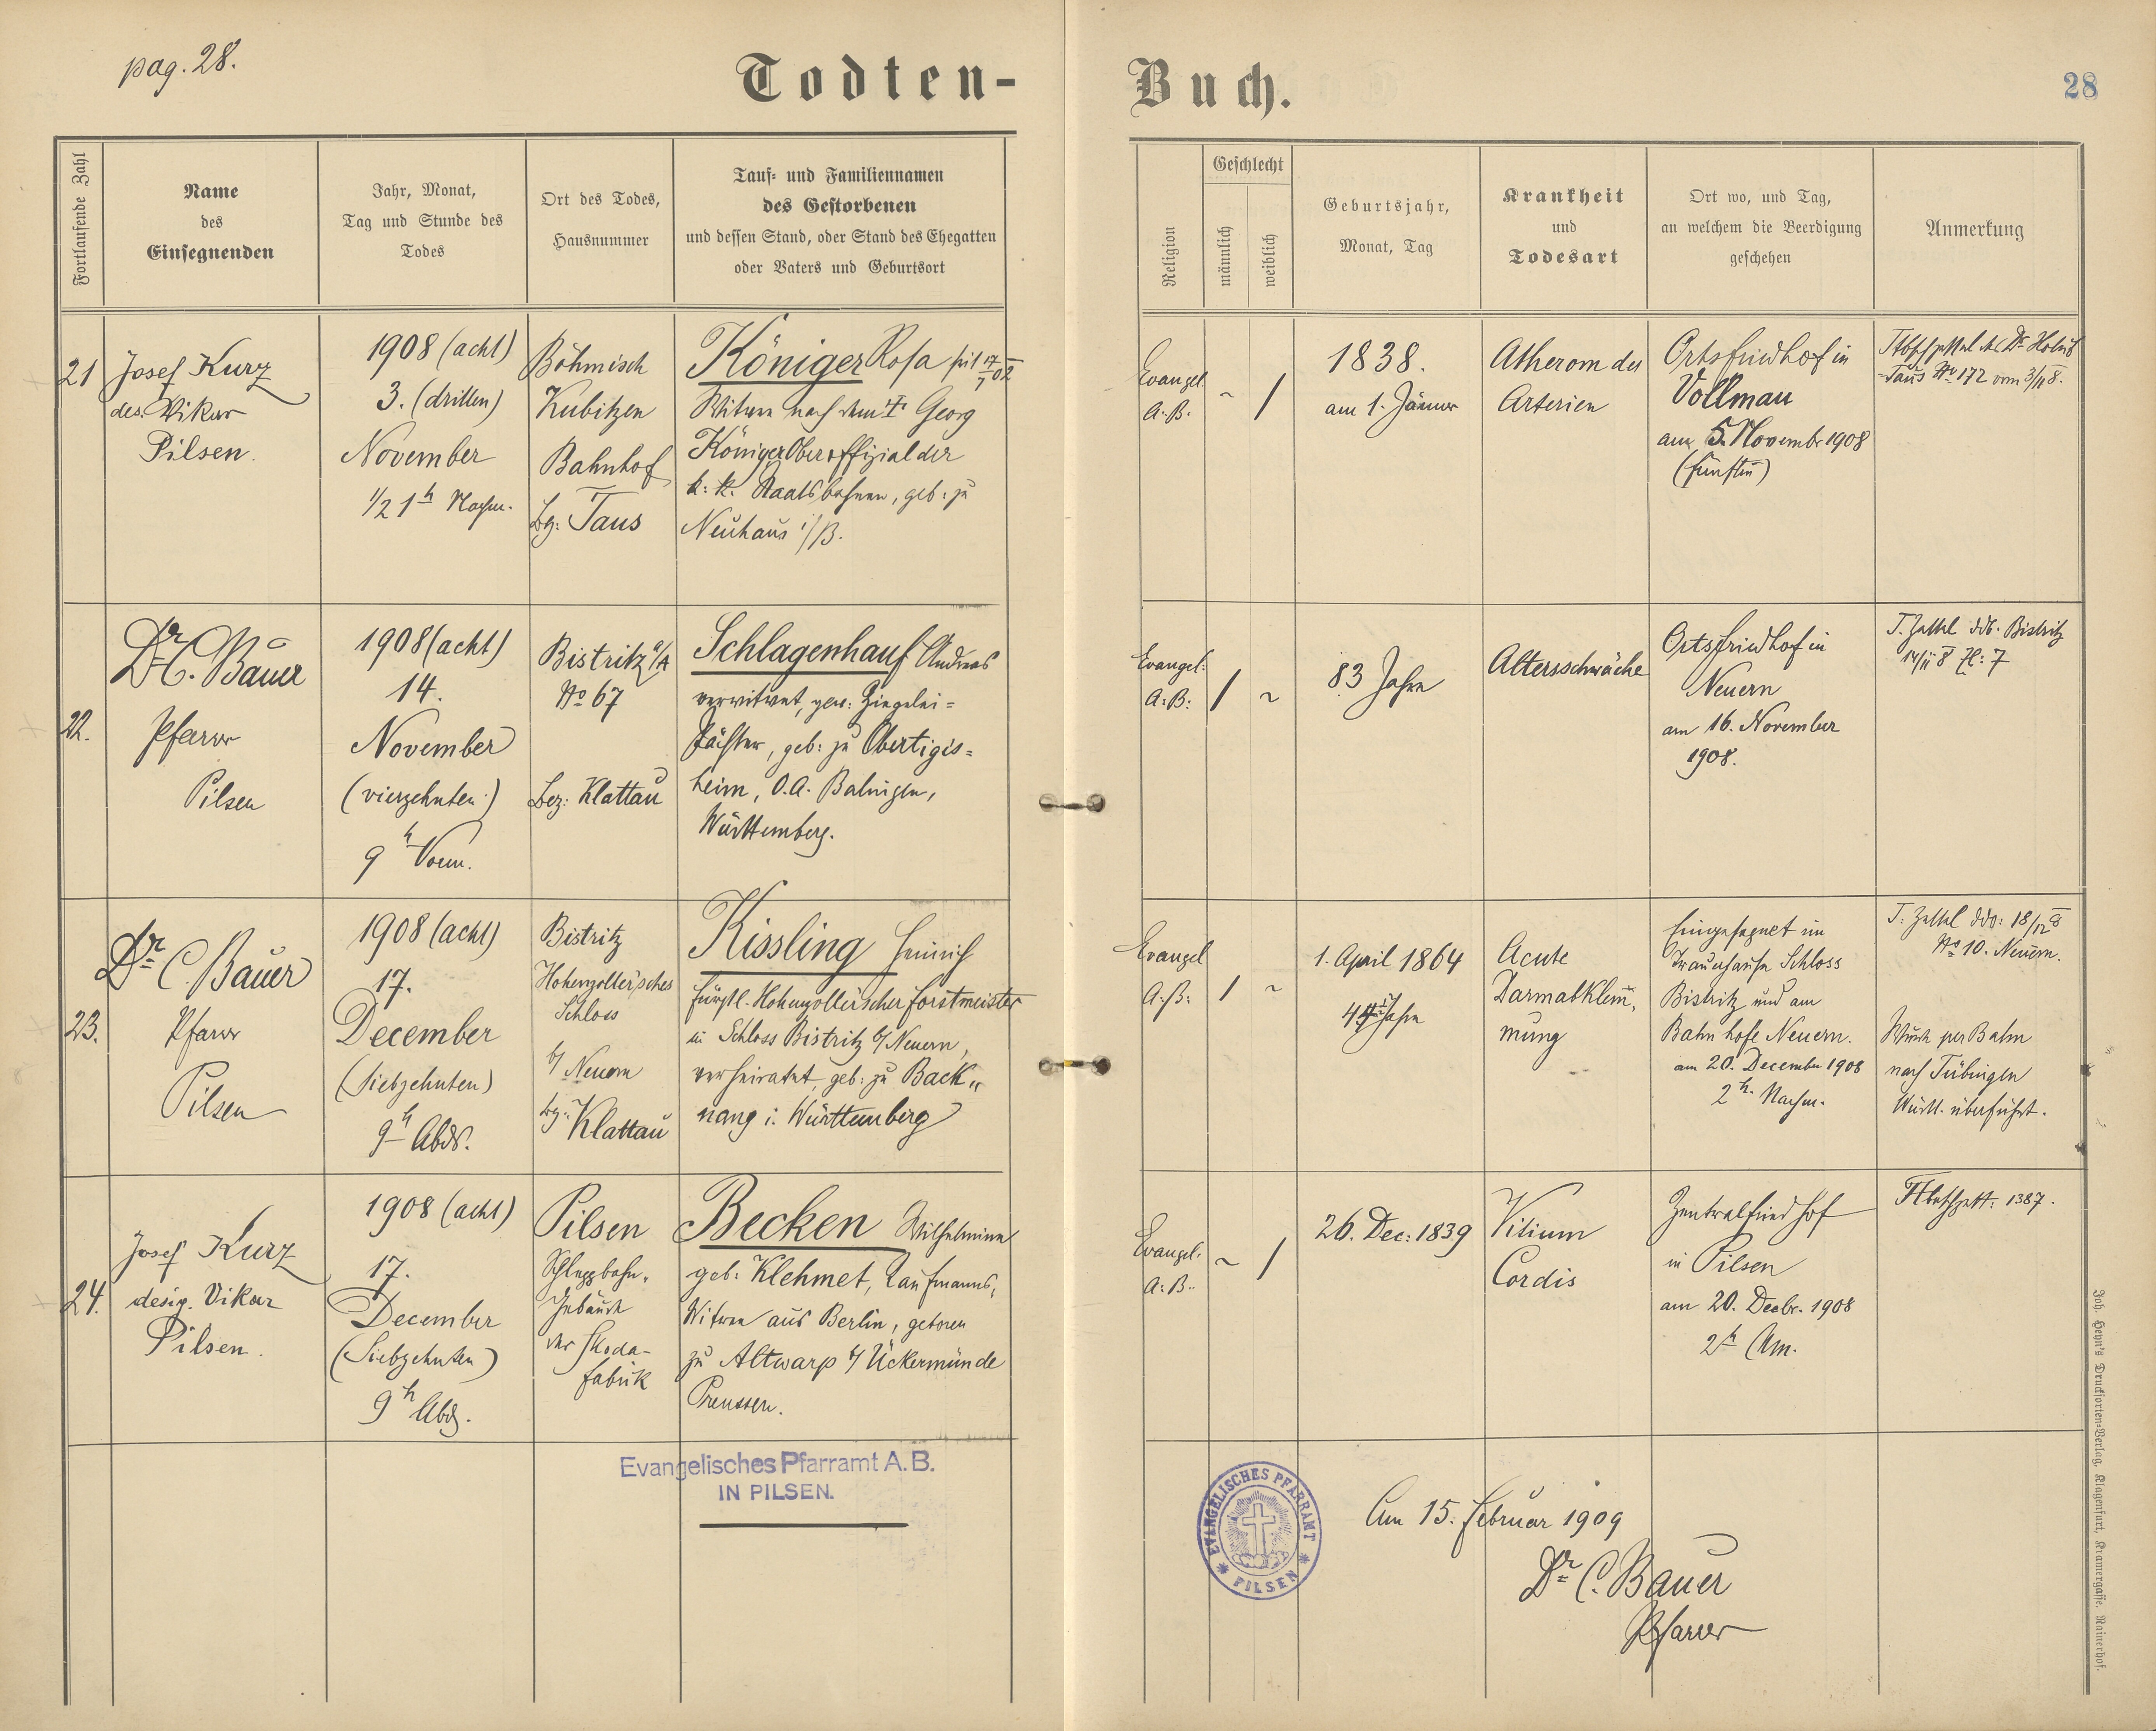 pag. 28.
Todten-
Buch.
28
Fortlaufende Zahl
Name
des
Einsegnenden
Jahr, Monat,
Tag und Stunde des
Todes
Ort des Todes,
Hausnummer
Tauf- und Familiennamen
des Gestorbenen
und dessen Stand, oder Stand des Ehegatten
oder Vaters und Geburtsort
Religion
Geschlecht
männlich
weiblich
Geburtsjahr,
Monat, Tag
Krankheit
und
Todesart
Ort wo, und Tag,
an welchem die Beerdigung
geschehen
Anmerkung
21
Josef Kurz
des. Vikar
Pilsen.
1908 (acht)
3. (dritten)
November
1/2 1h Nachm.
Böhmisch
Kubitzen
Bahnhof
Bz: Taus
Königer Rosa seit
Witwe nach dem † Georg
Königer Oberoffizial der
k: k. Staatsbahnen, geb: zu
Neuhaus i/B.
Evangel
A. B.
~
/
1838.
am 1. Jänner
Atherom der
Arterien
Ortsfriedhof in
Vollmau
am 5. November 1908
(fünften)
Taus No 172 vom 3/11 8.
22.
Dr C. Bauer
Pfarrer
Pilsen
1908 (acht)
14.
November
(vierzehnten)
9h Vorm.
Bistritz a/A
No 67
Bez: Klattau
Schlagenhauf Andreas
verwitwet, gew: Ziegelei-
Pächter, geb: zu Obertigis-
heim, O.A. Balingen,
Württemberg.
Evangel:
A: B:
/
~
83 Jahre
Altersschwäche
Ortsfriedhof in
Neuern
am 16. November
1908.
T. Zettel ddo. Bistritz
14/11 8 Zl: 7
23.
Dr C. Bauer
Pfarrer
Pilsen
1908 (acht)
17.
December
(siebzehnten)
9h Abds.
Bistritz
Hohenzoller'sches
Schloss
b/ Neuern
bz: Klattau
Kissling Heinrich
fürstl. Hohenzoller'scher Forstmeister
in Schloss Bistritz b/ Neuern,
verheiratet, geb: zu Back„
nang i. Württemberg
Evangel
A: B:
/
~
1. April 1864
44 Jahre
Acute
Darmabklem̄,
mung
Eingesegnet im
Trauerhause Schloss
Bistritz und am
Bahnhofe Neuern.
am 20. December 1908
2h. Nachm.
T: Zettel ddo: 18/12 8
No 10. Neuern.
Wurde per Bahn
nach Tübingen
Württ. überführt.
24.
Josef Kurz
desig. Vikar
Pilsen.
1908 (acht)
17.
December
(Siebzehnten)
9h Abds.
Pilsen
Schleppbahn,
Gebäude
der Skoda-
fabrik
Becken Wilhelmine
geb: Klehmet, Kaufmanns,
Witwe aus Berlin, geboren
zu Altwarp b/ Ückermünde
Preussen.
Evangel.
A: B:
~
/
26. Dec: 1839
Vitium
Cordis
Zentralfriedhof
in Pilsen
am 20. Decbr. 1908
2h Nm.
1387.
Evangelisches Pfarramt A. B.
IN PILSEN.
EVANGELISCHES PFARRAMT
* PILSEN *
Am 15. Februar 1909
Dr C. Bauer
Pfarrer
Joh. Heyn's Drucksorten-Verlag, Klagenfurt, Kramergasse. Rainerhof.